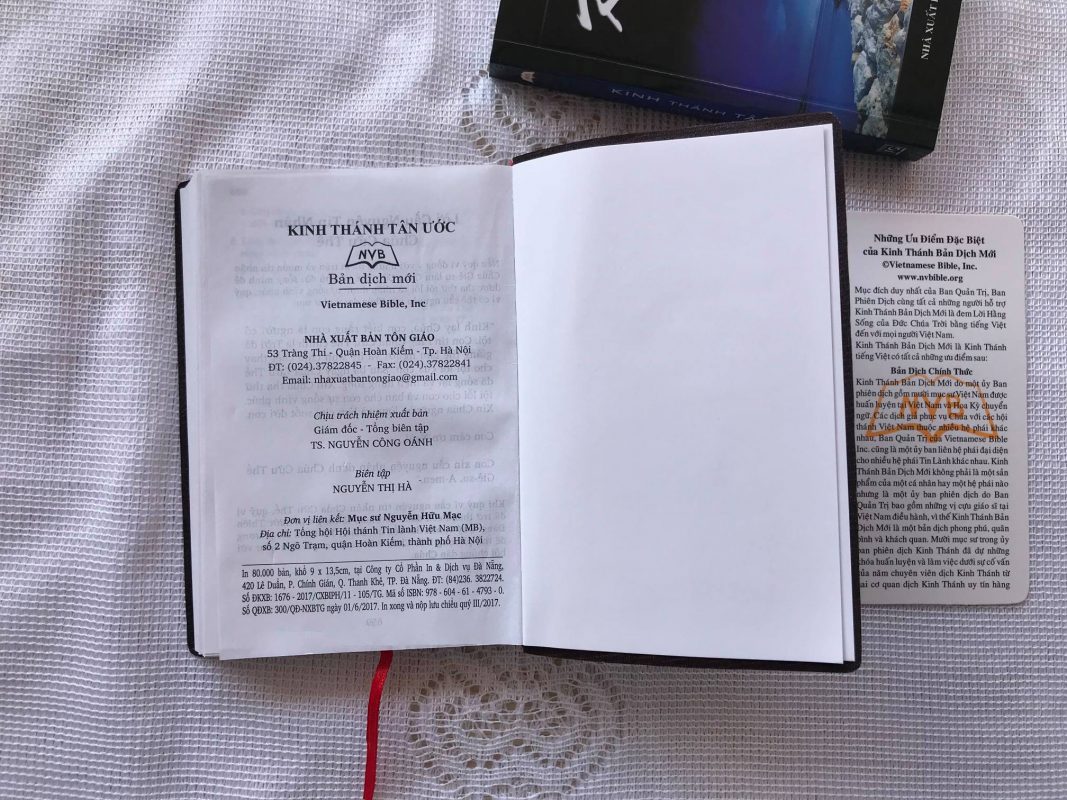 NHÀ XUẤT
KINH THÁNH TÂ
KINH THÁNH TÂN ƯỚC
NVB
Bản dịch mới
Vietnamese Bible, Inc
NHÀ XUẤT BẢN TÔN GIÁO
53 Tràng Thi - Quận Hoàn Kiếm - Tp. Hà Nội
ĐT: (024).37822845 - Fax: (024).37822841
Email: nhaxuatbantongiao@gmail.com
Chịu trách nhiệm xuất bản
Giám đốc - Tổng biên tập
TS. NGUYỄN CÔNG OÁNH
Biên tập
NGUYỄN THỊ HÀ
Đơn vị liên kết: Mục sư Nguyễn Hữu Mạc
Địa chỉ: Tổng hội Hội thánh Tin lành Việt Nam (MB),
số 2 Ngõ Trạm, quận Hoàn Kiếm, thành phố Hà Nội
In 80.000 bản, khổ 9 x 13,5cm, tại Công ty Cổ Phần In & Dịch vụ Đà Nẵng,
420 Lê Duẩn, P. Chính Gián, Q. Thanh Khê, TP. Đà Nẵng. ĐT: (84)236. 3822724.
Số ĐKXB: 1676 - 2017/CXBIPH/11 - 105/TG. Mã số ISBN: 978 - 604 - 61 - 4793 - 0.
Số QĐXB: 300/QĐ-NXBTG ngày 01/6/2017. In xong và nộp lưu chiểu quý III/2017.
Những Ưu Điểm Đặc Biệt
của Kinh Thánh Bản Dịch Mới
©Vietnamese Bible, Inc.
www.nvbible.org
Mục đích duy nhất của Ban Quản Trị, Ban
Phiên Dịch cùng tất cả những người hỗ trợ
Kinh Thánh Bản Dịch Mới là đem Lời Hằng
Sống của Đức Chúa Trời bằng tiếng Việt
đến với mọi người Việt Nam.
Kinh Thánh Bản Dịch Mới là Kinh Thánh
tiếng Việt có tất cả những ưu điểm sau:
Bản Dịch Chính Thức
Kinh Thánh Bản Dịch Mới do một ủy Ban
phiên dịch gồm mười mục sư Việt Nam được
huấn luyện tại Việt Nam và Hoa Kỳ chuyển
ngữ. Các dịch giả phục vụ Chúa với các hội
thánh Việt Nam thuộc nhiều hệ phái khác
nhau. Ban Quản Trị của Vietnamese Bible
Inc. cũng là một ủy ban liên hệ phái đại diện
cho nhiều hệ phái Tin Lành khác nhau. Kinh
Thánh Bản Dịch Mới không phải là một sản
phẩm của một cá nhân hay một hệ phái nào
nhưng là một ủy ban phiên dịch do Ban
Quản Trị bao gồm những vị cựu giáo sĩ tại
Việt Nam điều hành, vì thế Kinh Thánh Bản
Dịch Mới là một bản dịch phong phú, quân
bình và khách quan. Mười mục sư trong ủy
ban phiên dịch Kinh Thánh đã dự những
khóa huấn luyện và làm việc dưới sự cố vấn
của năm chuyên viên dịch Kinh Thánh từ
hai cơ quan dịch Kinh Thánh uy tín hàng